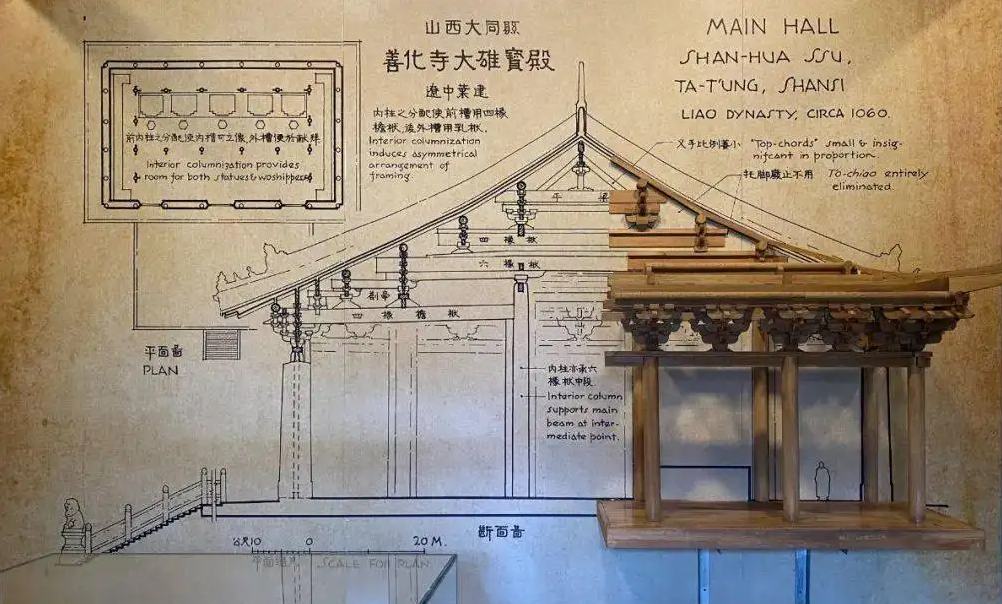 山西大同縣
善化寺大雄寳殿
遼中葉建
内柱之分配使前槽用四椽
檐栿,後外槽用乳栿.
Interior columnization
induces asymmetrical
arrangement of
framing.
MAIN HALL
SHAN-HUA SSU,
TA-T'UNG, SHANSI
LIAO DYNASTY, CIRCA 1060.
前内柱之分配使内槽可立像,外槽便於献拜
Interior columnization provides
room for both statues & woshippers
叉手比例甚小 "Top-chords" small & insig-
nifcant in proportion.
托脚廢止不用 To-chiao entirely
eliminated.
平梁
四椽栿
六椽栿
劄牽
四椽檐栿
平面圖
PLAN
内柱亦承六
椽栿中段
Interior column
supports main
beam at inter-
mediate point.
断面圖
公尺10 0 20 M.
SCALE FOR PLAN